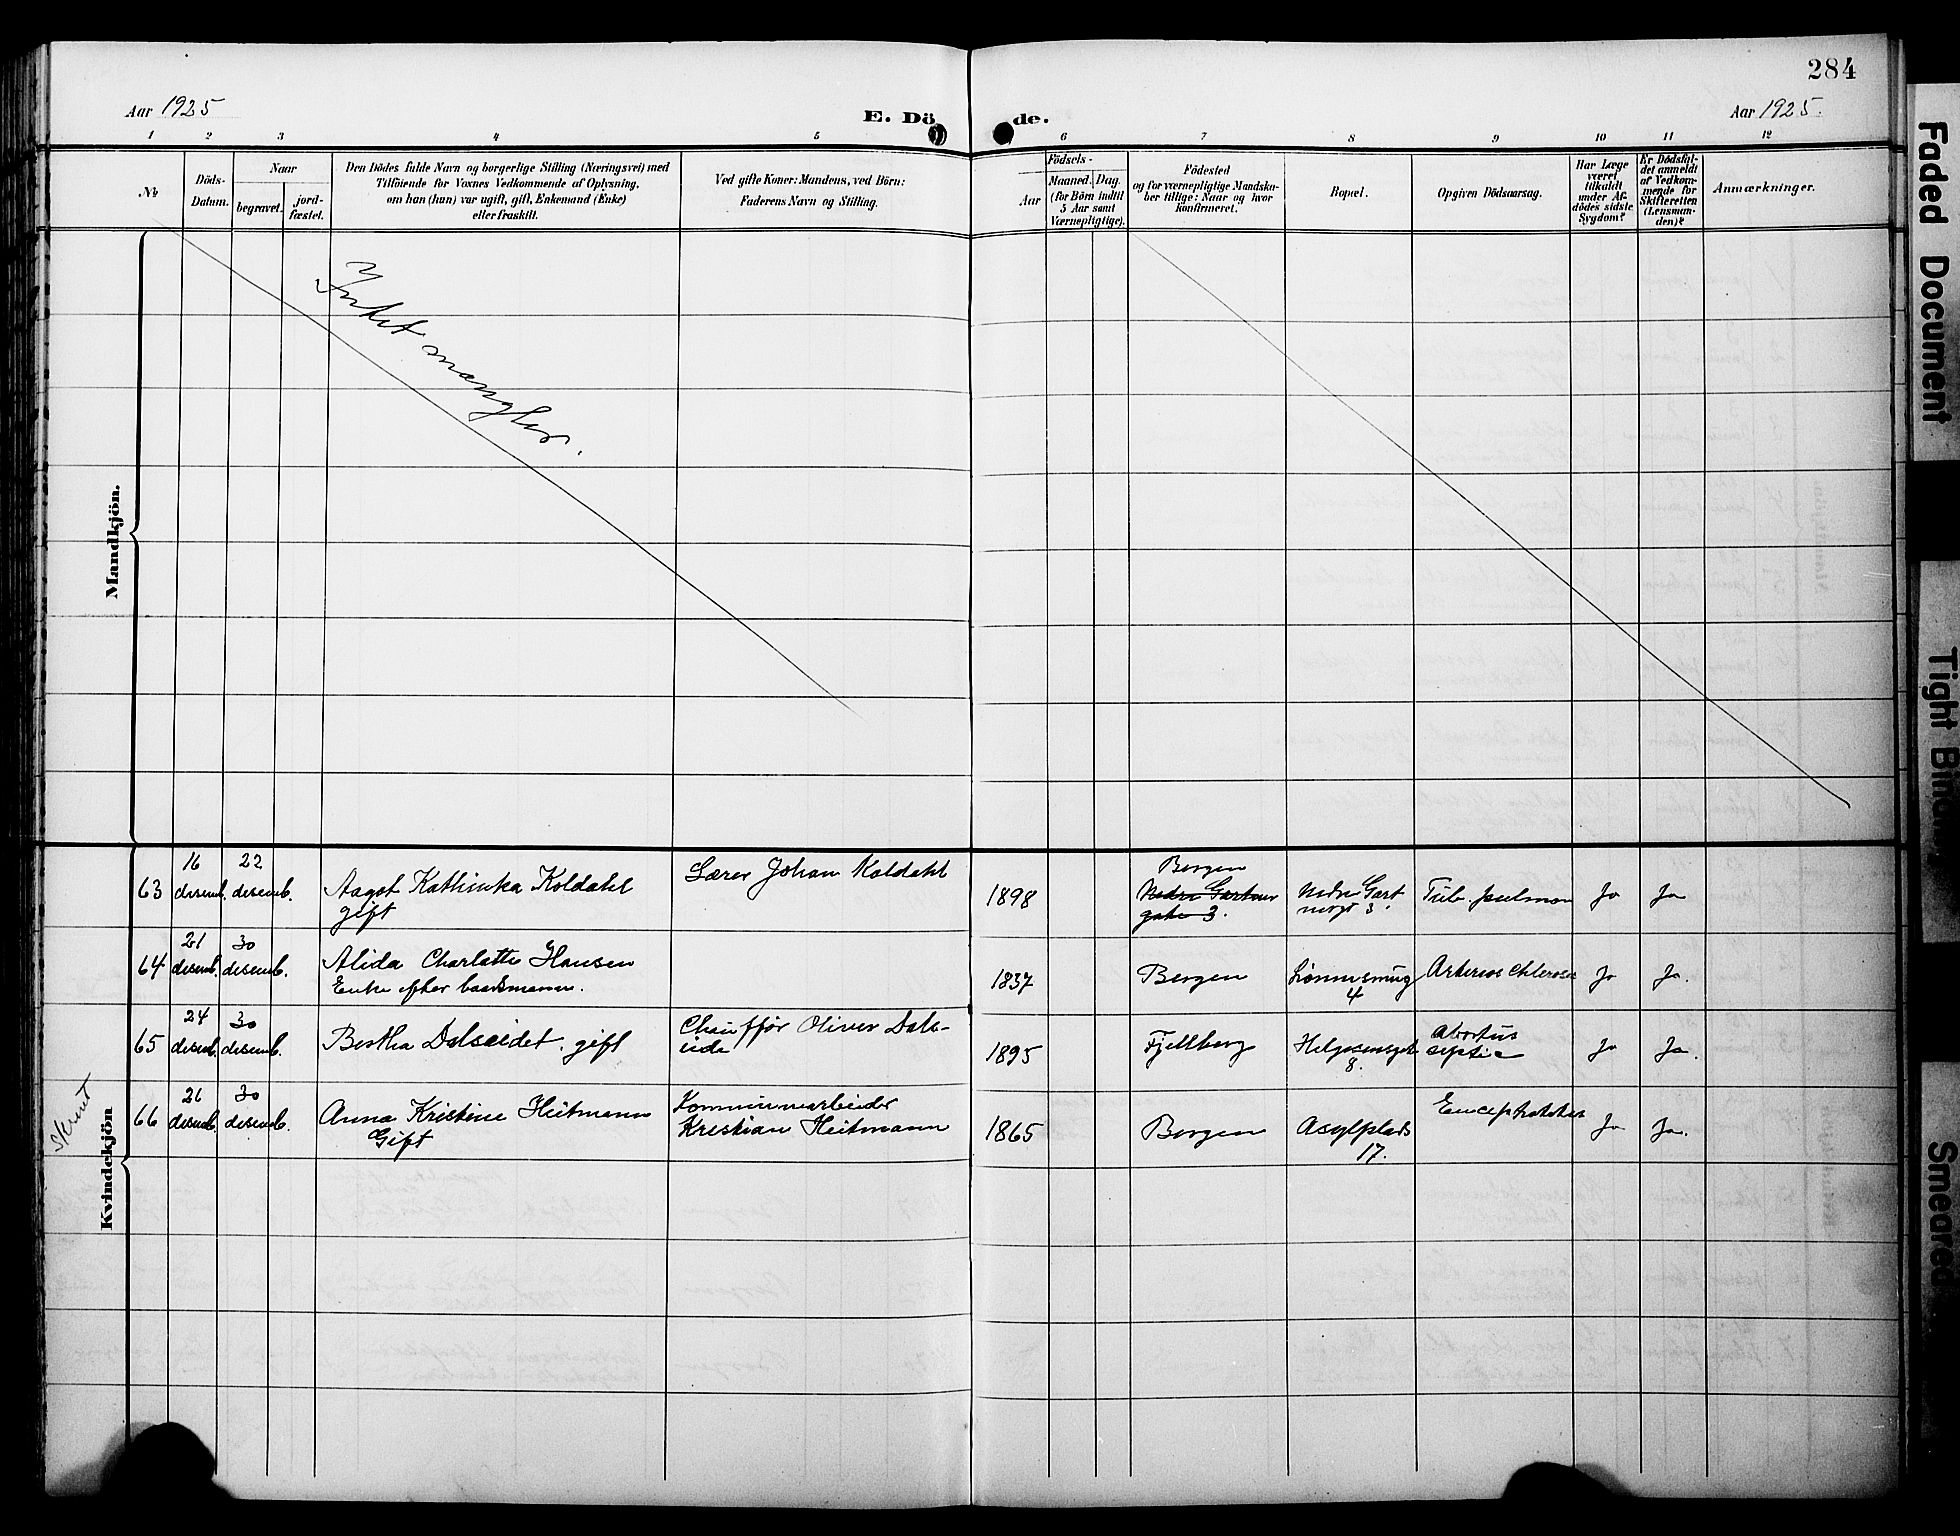 284
Aar 1925
E. Dö
de.
Aar 1925.
1 2 3 4 5 6 7 8 9 10 11 12
No
Döds-
Datum.
Naar
begravet.
jord-
fæstet.
Den Dödes fulde Navn og borgerlige Stilling (Næringsvei) med
Tilföiende for Voxnes Vedkommende af Oplysning,
om han (hun) var ugift, gift, Enkemand (Enke)
eller fraskilt.
Ved gifte Koner: Mandens, ved Börn:
Faderens Navn og Stilling.
Födsels-
Aar
Maaned. Dag.
(for Börn indtil
5 Aar samt
Værnepligtige).
Födested
og for værnepligtige Mandska-
ber tillige: Naar og hvor
konfirmeret.
Bopæl.
Opgiven Dödsaarsag.
Har Læge
været
tilkaldt
under Af-
dödes sidste
Sygdom?
Er Dödsfal-
det anmeldt
af Vedkom-
mende for
Skifteretten
(Lensman-
den)?
Anmærkninger.
Mandkjön.
Intet mangler.
Kvindekjön
63
16
desemb.
22
desemb.
Aagot Kathinka Koldahl
gift
Lærer Johan Koldahl
1898
Bergen
Nedre Gartner
gate 3.
Nedre Gart
nergt 3.
Tub. pulmon
Ja
Ja
64
21
desemb.
30
desemb.
Alida Charlotte Hansen
Enke efter baadsmann.
1837
Bergen
4
Ja
Ja.
65
24
desemb.
30
desemb.
Bertha Dalseidet. gift
Chauffør Oliver Dals-
eide
1895
Fjellberg
Helgesensgt
8.
Abortus
septic
Ja
Ja.
66
21
desemb.
30
desemb.
Anna Kristine Heitmann
Gift
Kommunearbeider
Kristian Heitmann
1865
Bergen
Asylplads
17.
Ja
Ja.
Faded Document
Tight Binding
Smeared